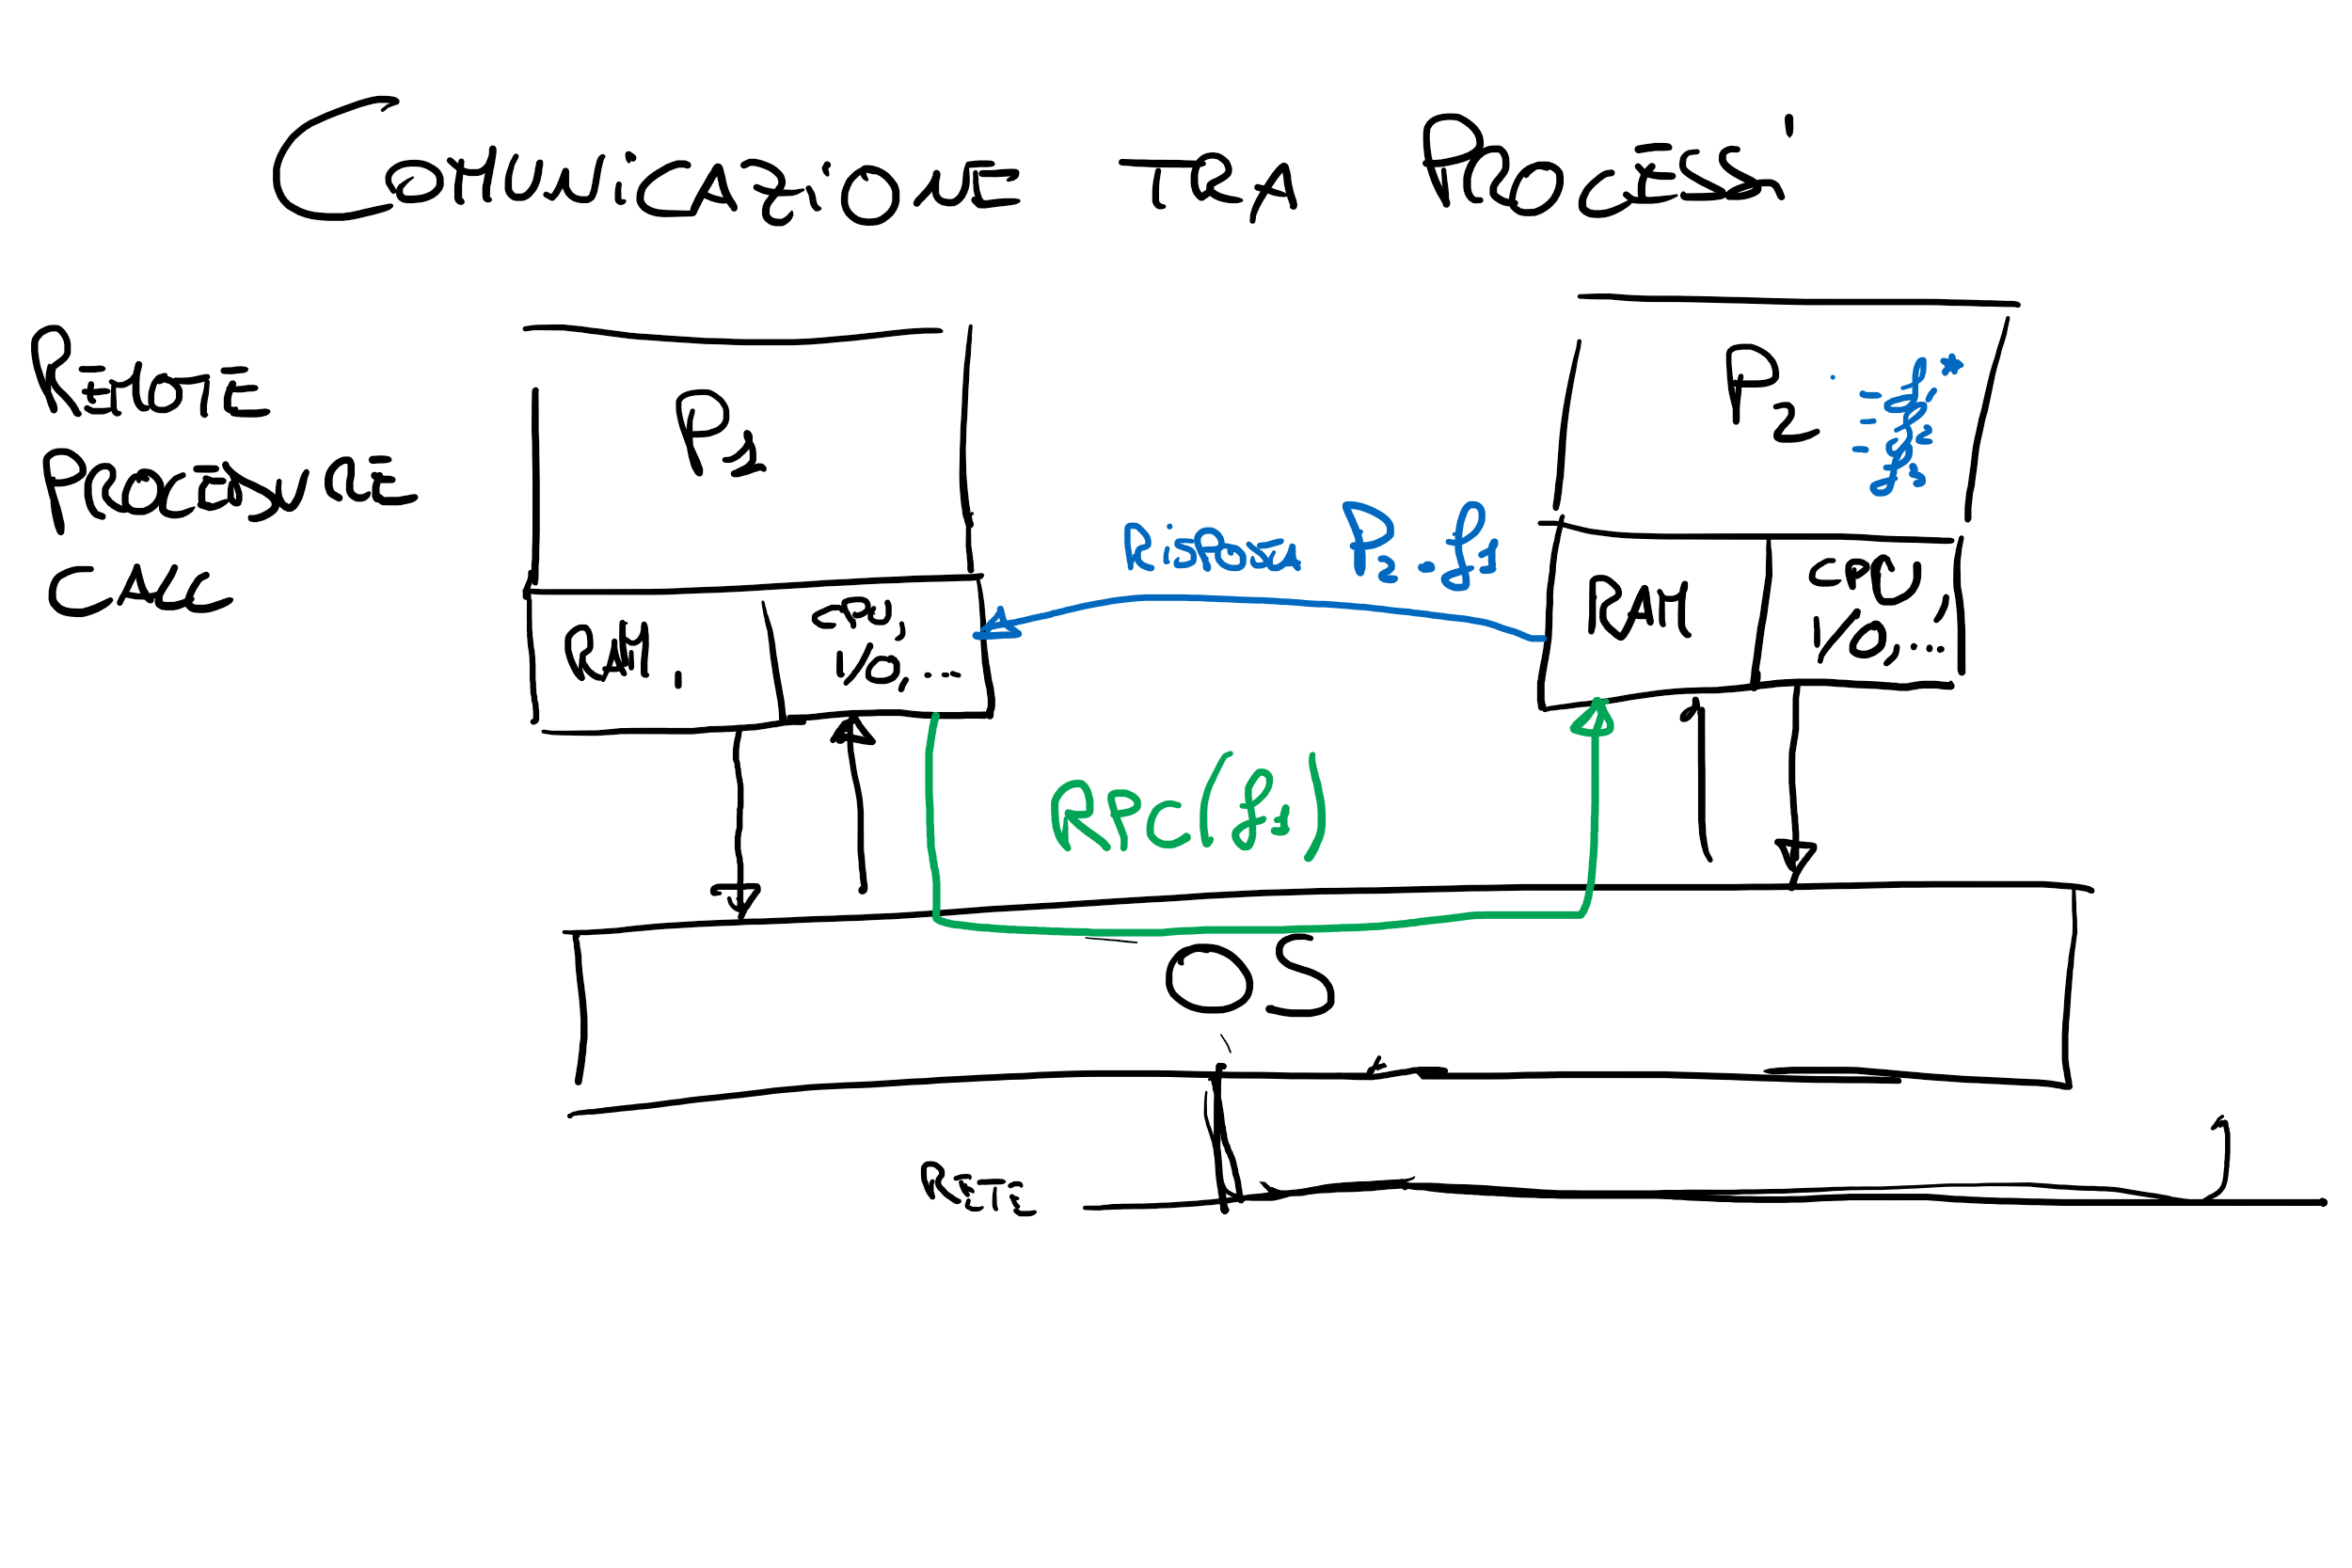 COMUNICAZIONE TRA PROCESSI
REMOTE
PROCEDURE
CALL
P1
P2
- f*
- f2
- f3
RAM
CPU,
I/O, ...
RAM
I/O, ...
P2.f1
RPC(f1)
OS
RETE